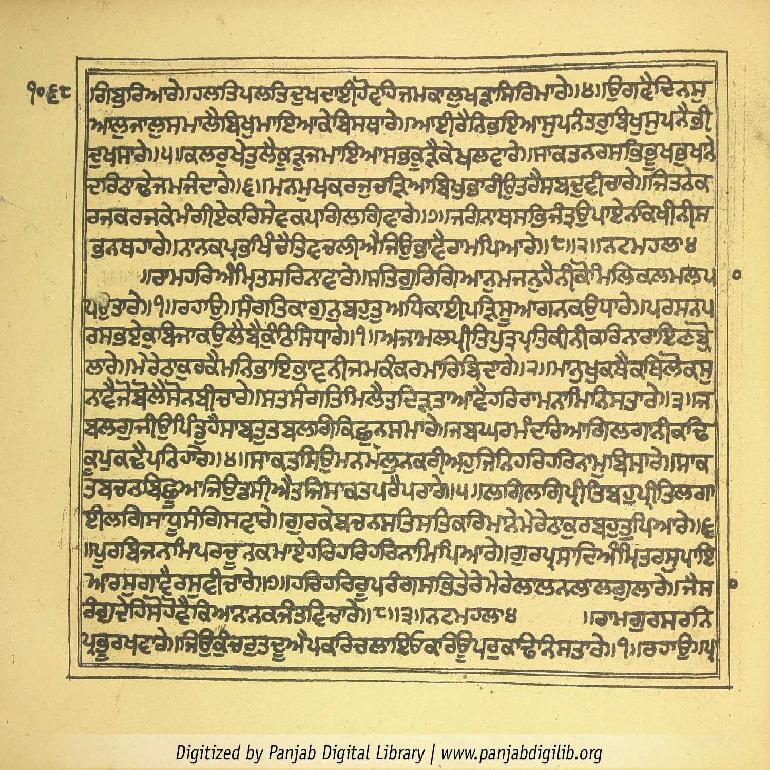 ੧੦੬੮ ਗਿਬੁਰਿਆਰੇ॥ਹਲਤਿਪਲਤਿਦੁਖਦਾਈਹੋਵਹਿਜਮਕਾਲੁਖੜਾਸਿਰਿਮਾਰੇ॥੪॥ਉਗਵੈਦਿਨਸੁ
ਆਲੁਜਾਲੁਸਮਾਲੈਬਿਖੁਮਾਇਆਕੇਬਿਸਥਾਰੇ॥ਆਈਰੈਨਿਭਇਆਸੁਪਨੰਤਰੁਬਿਖੁਸੁਪਨੈਭੀ
ਦੁਖਸਾਰੇ॥੫॥ਕਲਰੁਖੇਤੁਲੈਕੂੜੁਜਮਾਇਆਸਭਕੂੜੈਕੇਖਲਵਾਰੇ॥ਸਾਕਤਨਰਸਭਿਭੂਖਭੁਖਾਨੇ
ਦਰਿਠਾਢੇਜਮਜੰਦਾਰੇ॥੬॥ਮਨਮੁਖਕਰਜੁਚੜਿਆਬਿਖੁਭਾਰੀਉਤਰੈਸਬਦੁਵੀਚਾਰੇ॥ਜਿਤਨੇਕ
ਰਜਕਰਜਕੇਮੰਗੀਏਕਰਿਸੇਵਕਪਗਿਲਗਿਵਾਰੇ॥੭॥ਜਗੰਨਾਥਸਭਿਜੰਤ੍ਰਉਪਾਏਨਕਿਖੀਨੀਸ
ਭਨਥਹਾਰੇ॥ਨਾਨਕਪ੍ਰਭੁਖਿੰਚੈਤਿਵਚਲੀਐਜਿਉਭਾਵੈਰਾਮਪਿਆਰੇ॥੮॥੨॥ਨਟਮਹਲਾ੪
॥ਰਾਮਹਰਿਅੰਮ੍ਰਿਤਸਰਿਨਾਵਾਰੇ॥ਸਤਿਗੁਰਿਗਿਆਨੁਮਜਨੁਹੈਨੀਕੋਮਿਲਿਕਲਮਲਪਾ
ਪਉਤਾਰੇ॥੧॥ਰਹਾਉ॥ਸੰਗਤਿਕਾਗੁਨੁਬਹੁਤੁਅਧਿਕਾਈਪੜਿਸੂਆਗਨਕਉਧਾਰੇ॥ਪਰਸਨਪ
ਰਸਭਏਕੁਬਿਜਾਕਉਲੈਬੈਕੁੰਠਿਸਿਧਾਰੇ॥੧॥ਅਜਾਮਲਪ੍ਰੀਤਿਪੁਤ੍ਰਪ੍ਰਤਿਕੀਨੀਕਰਿਨਾਰਾਇਣਬੋ
ਲਾਰੇ॥ਮੇਰੇਠਾਕੁਰਕੈਮਨਿਭਾਇਭਾਵਨੀਜਮਕੰਕਰਮਾਰਿਬਿਦਾਰੇ॥੨॥ਮਾਨੁਖੁਕਥੈਕਥਿਲੋਕਸੁ
ਨਾਵੈਜੋਬੋਲੈਸੋਨਬੀਚਾਰੇ॥ਸਤਸੰਗਤਿਮਿਲੈਤਦਿੜਤਾਆਵੈਹਰਿਰਾਮਨਾਮਿਨਿਸਤਾਰੇ॥੩॥ਜ
ਬਲਗੁਜੀਉਪਿੰਡੁਹੈਸਾਬਤੁਤਬਲਗਿਕਿਛੁਨਸਮਾਰੇ॥ਜਬਘਰਮੰਦਰਿਆਗਿਲਗਾਨੀਕਢਿ
ਕੂਪੁਕਢੈਪਨਿਹਾਰੇ॥੪॥ਸਾਕਤਸਿਉਮਨਮੇਲੁਨਕਰੀਅਹੁਜਿਨਿਹਰਿਹਰਿਨਾਮੁਬਿਸਾਰੇ॥ਸਾਕ
ਤਬਚਨਬਿਛੂਆਜਿਉਡਸੀਐਤਜਿਸਾਕਤਪਰੈਪਰਾਰੇ॥੫॥ਲਗਿਲਗਿਪ੍ਰੀਤਿਬਹੁਪ੍ਰੀਤਿਲਗਾ
ਈਲਗਿਸਾਧੂਸੰਗਿਸਵਾਰੇ॥ਗੁਰਕੇਬਚਨਸਤਿਸਤਿਕਰਿਮਾਨੇਮੇਰੇਠਾਕੁਰਬਹੁਤੁਪਿਆਰੇ॥੬
॥ਪੂਰਬਿਜਨਮਿਪਰਚੂਨਕਮਾਏਹਰਿਹਰਿਹਰਿਨਾਮਿਪਿਆਰੇ॥ਗੁਰਪ੍ਰਸਾਦਿਅੰਮ੍ਰਿਤਰਸੁਪਾਇ
ਆਰਸੁਗਾਵੈਰਸੁਵੀਚਾਰੇ॥੭॥ਹਰਿਹਰਿਰੂਪਰੰਗਸਭਿਤੇਰੇਮੇਰੇਲਾਲਨਲਾਲਗੁਲਾਰੇ॥ਜੈਸਾ
ਰੰਗੁਦੇਹਿਸੋਹੋਵੈਕਿਆਨਾਨਕਜੰਤਵਿਚਾਰੇ॥੮॥੩॥ਨਟਮਹਲਾ੪ ॥ਰਾਮਗੁਰਸਰਨਿ
ਪ੍ਰਭੂਰਖਵਾਰੇ॥ਜਿਉਕੁੰਚਰੁਤਦੂਐਪਕਰਿਚਲਾਇਓਕਰਿਊਪਰੁਕਢਿਨਿਸਤਾਰੇ॥੧॥ਰਹਾਉ॥ਪ੍ਰ
Digitized by Panjab Digital Library | www.panjabdigilib.org